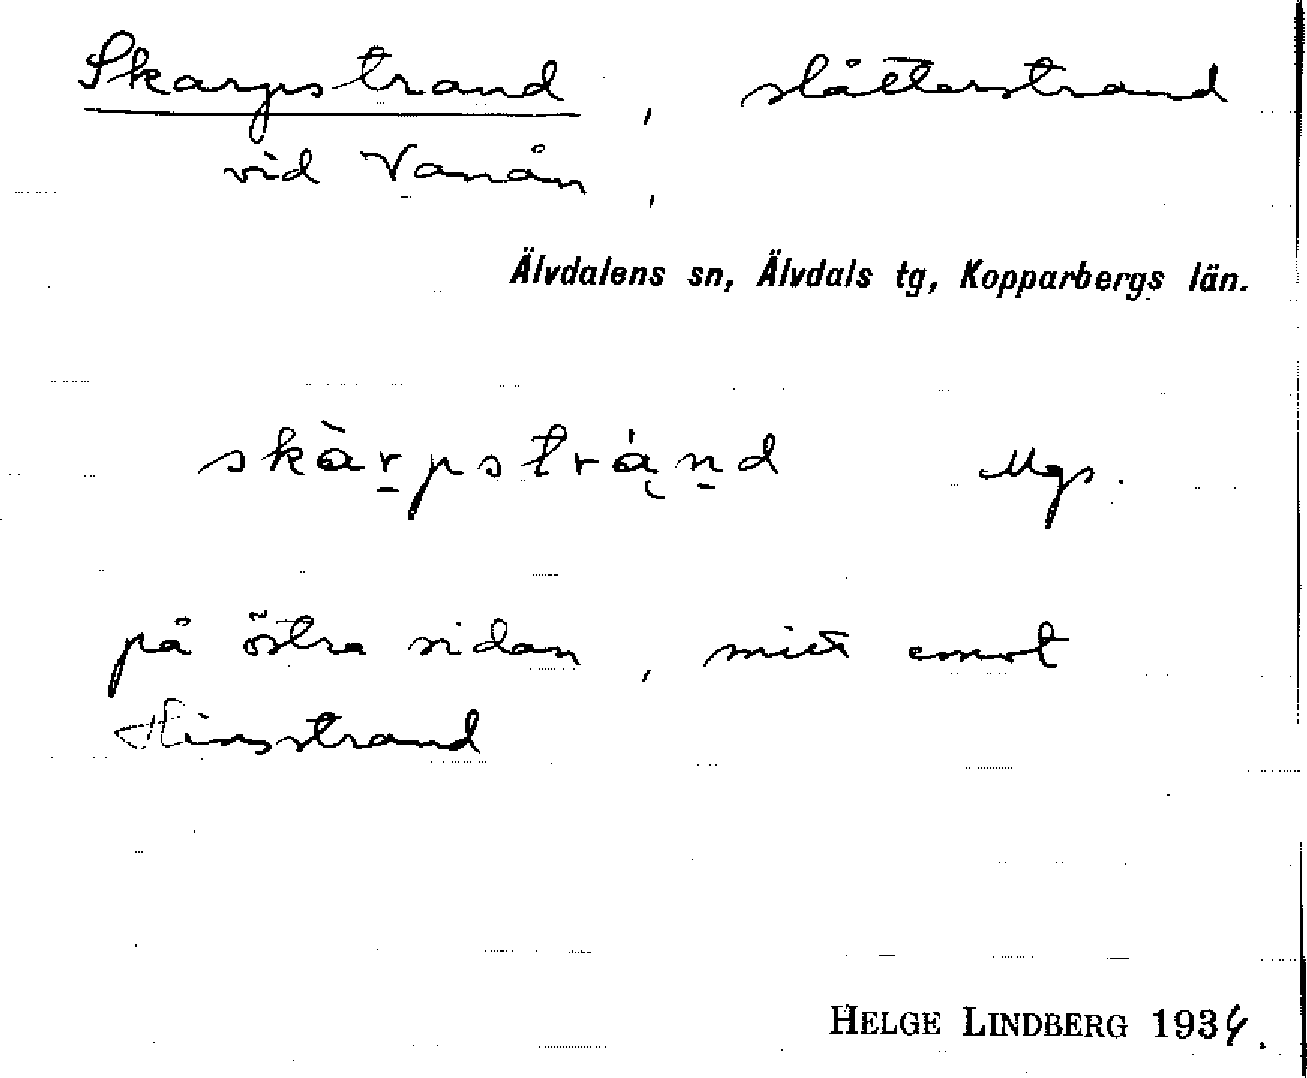 Skarpstrand, slåtterstrand
vid Vanån,
Älvdalens sn, Älvdals tg, Kopparbergs län.
skàr̠pstrą́n̠d Mgs.
på östra sidan, mitt emot
Hinsstrand
HELGE LINDBERG 1934.